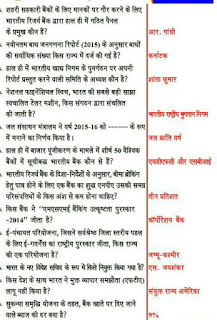 शहरी सहकारी बैंकों के लिए मानकों पर गौर करने के लिए
भारतीय रिजर्व बैंक द्वारा हाल ही में गठित पैनल
के प्रमुख कौन हैं? आर. गांधी
नवीनतम बाघ जनगणना रिपोर्ट (2015) के अनुसार बाघों
की सर्वाधिक संख्या किस राज्य में दर्ज की गई है? कर्नाटक
हाल ही में भारतीय खाद्य निगम के पुनर्गठन पर अपनी
रिपोर्ट प्रस्तुत करने वाली समिति के अध्यक्ष कौन है? शांता कुमार
नेशनल फाइनेंशियल स्विच, भारत की सबसे बड़ी साझा
स्वचालित टेलर मशीन, किस संगठन द्वारा संचलित
की जाती है? भारतीय राष्ट्रीय भुगतान निगम
जल संसाधन मंत्रालय ने वर्ष 2015-16 को ------- के रूप
में मनाने का निर्णय किया है। जल क्रांति वर्ष
हाल ही में बाजार पूंजीकरण के मामले में शीर्ष 50 वैश्विक
बैंकों में सूचीबद्ध भारतीय बैंक कौन से हैं? एचडीएफसी और एसबीआई
भारतीय रिजर्व बैंक के दिशा-निर्देशों के अनुसार, बीमा ब्रोकिंग
हेतु पात्र होने के लिए एक बैंक का शुद्ध एनपीए उसकी समग्र
परिसंपत्तियों के किस अंश से कम होना चाहिए? तीन प्रतिशत
किस बैंक ने "एमएसएमई बैंकिंग उत्कृष्टता पुरस्कार
-2014" जीता है? कॉर्पोरेशन बैंक
ई-पंचायत परियोजना, जिसने सर्वश्रेष्ठ जिला स्तरीय पहल
के लिए ई-गवर्नेंस का राष्ट्रीय पुरस्कार जीता, किस राज्य
की एक परियोजना है? जम्मू-कश्मीर
भारत के नए विदेश सचिव के रूप में किसे नियुक्त किया गया है? एस. जयशंकर
किस देश के साथ भारत ने मुक्त व्यापार समझौता (एफटीए)
लागू नहीं किया है? संयुक्त राज्य अमेरिका
सुकन्या समृद्धि योजना के तहत, बैंक खाते पर दिए जाने
वाले ब्याज की दर क्या है? 9%